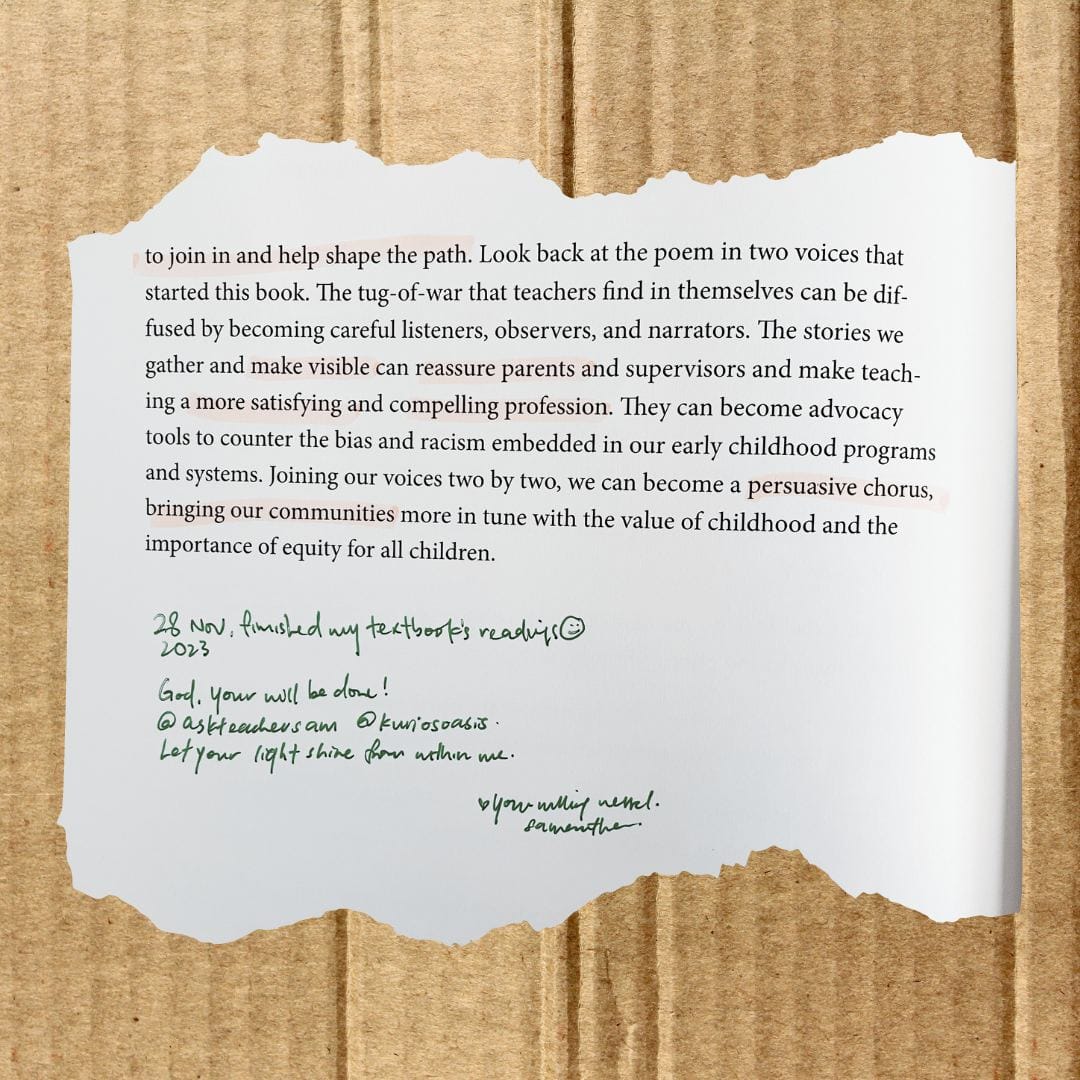 to join in and help shape the path. Look back at the poem in two voices that
started this book. The tug-of-war that teachers find in themselves can be dif-
fused by becoming careful listeners, observers, and narrators. The stories we
gather and make visible can reassure parents and supervisors and make teach-
ing a more satisfying and compelling profession. They can become advocacy
tools to counter the bias and racism embedded in our early childhood programs
and systems. Joining our voices two by two, we can become a persuasive chorus,
bringing our communities more in tune with the value of childhood and the
importance of equity for all children.
28 Nov, finished my textbook's readings
2023
God, your will be done!
@askteachersam @kuriosoasis.
Let your light shine from within me.
your willing vessel.
samantha.